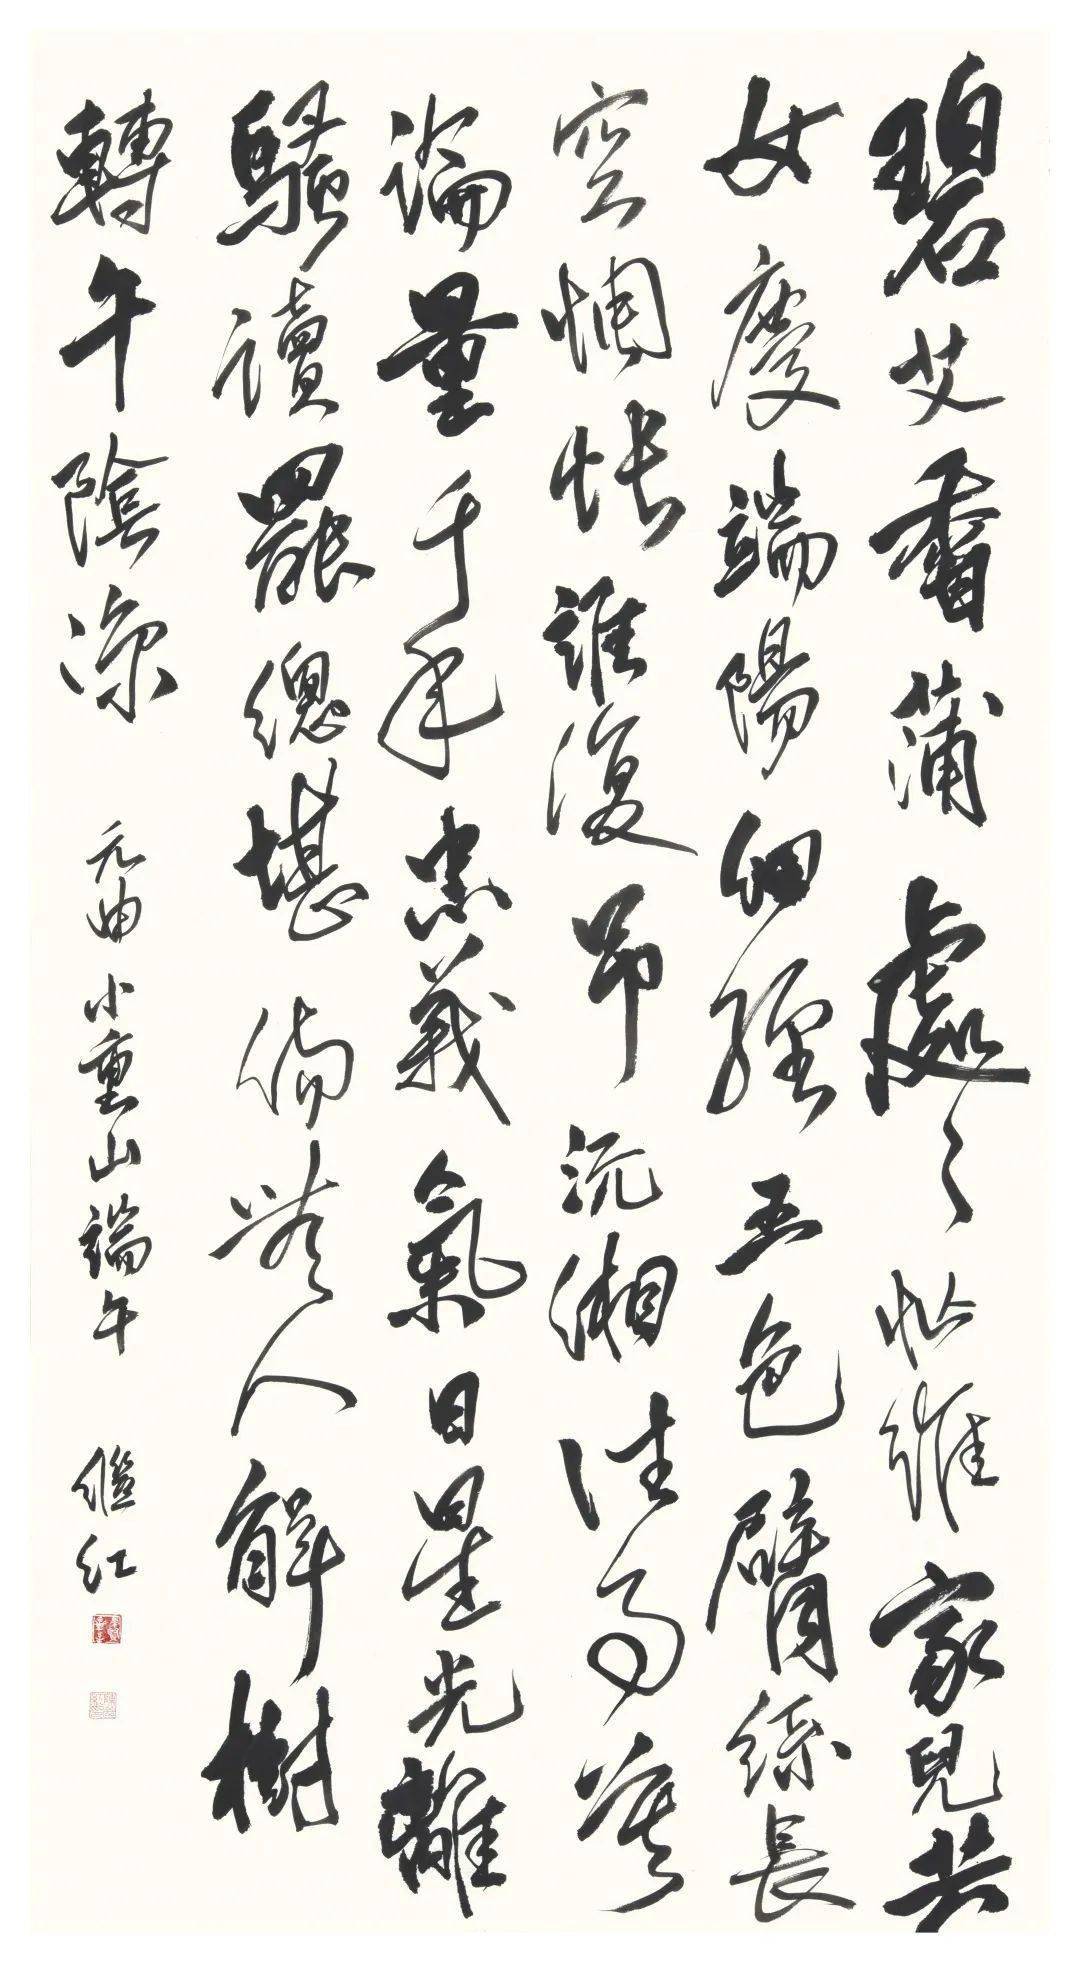 碧艾香蒲處々忙誰家兒共
女慶端陽細纏五色臂絲長
空惆悵誰復弔沅湘往事莫
論量千年忠義氣日星光離
騷讀罷總堪傷無人解樹
轉午陰涼 元曲小重山端午 繼红